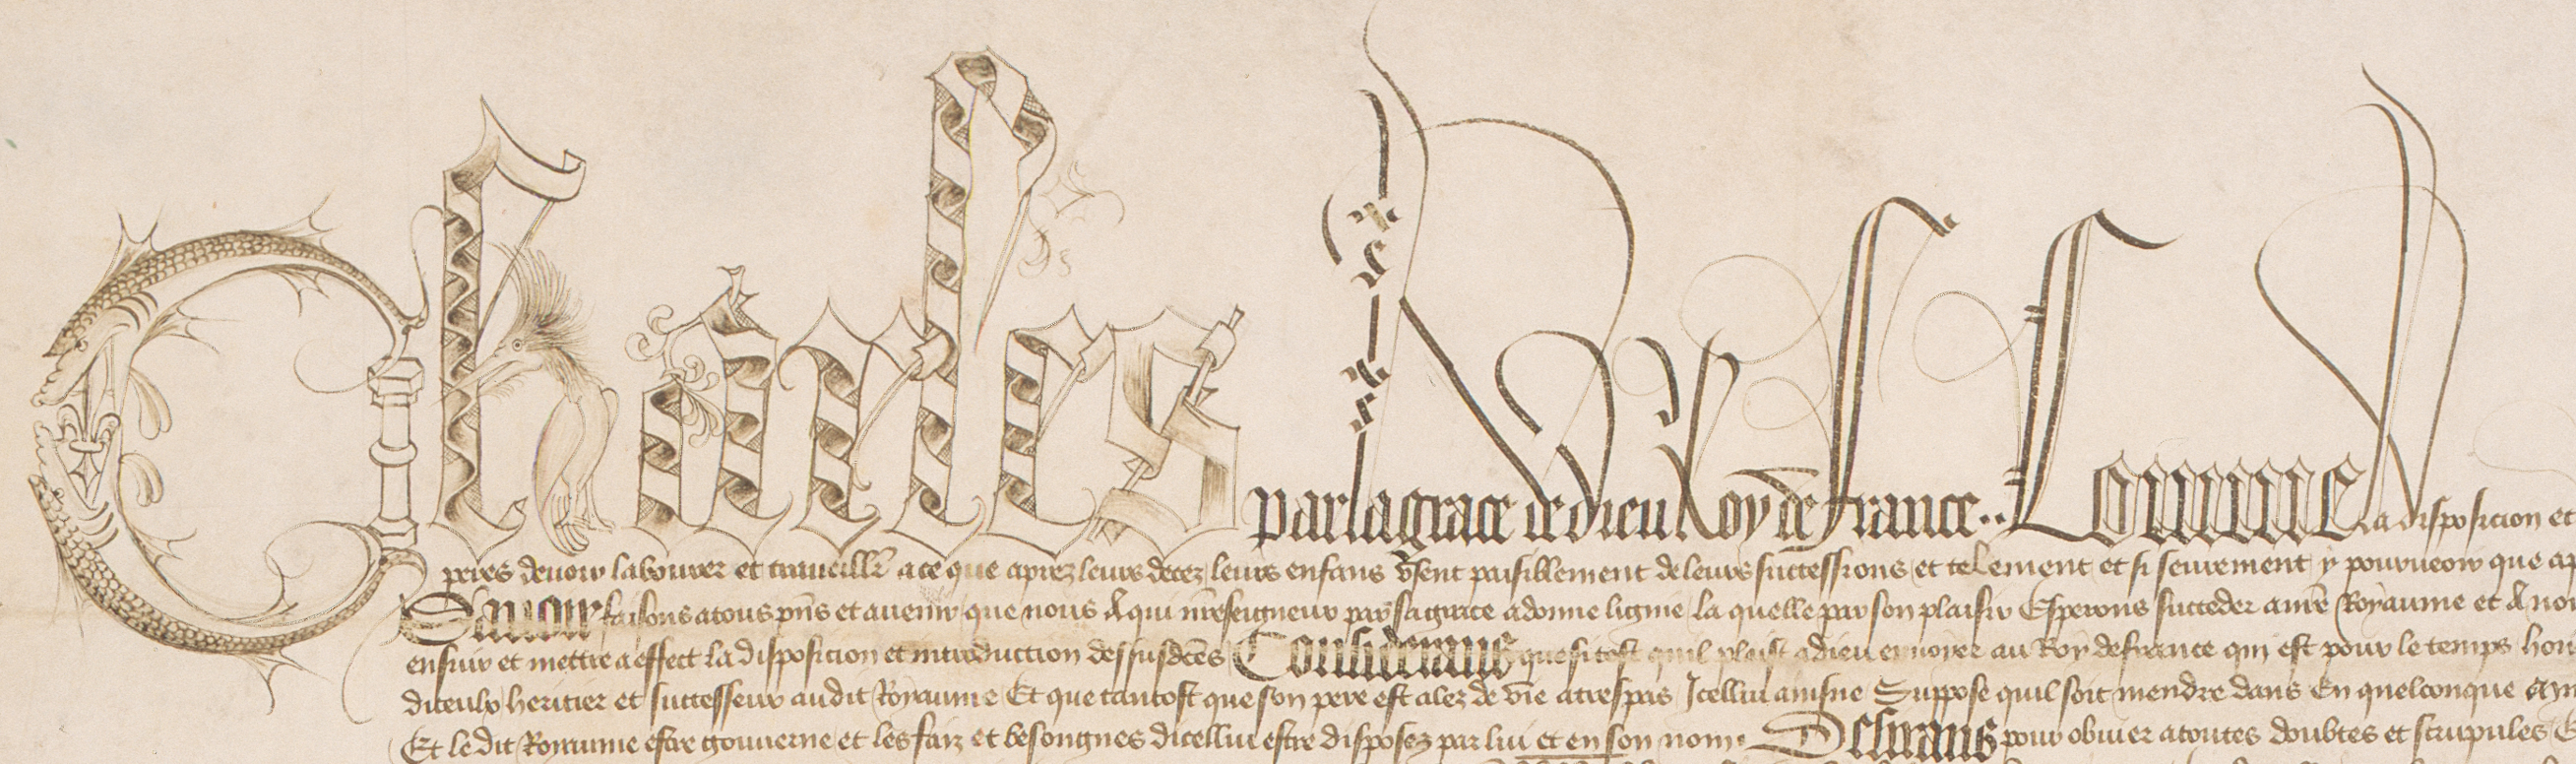 Charles par la grace de dieu Roy de france .. Comme la disposicion et
peres devoir labourer et traveillr a ce que aprez leurs decez leurs enfans usent paisiblement de leurs successions et telement et si seurement y pourveoir que
Savoir faisons a tous pns et avenir que nous A qui nreseigneur par sa grace a donne lignie la quelle par son plaisir Esperons succeder a nre Royaume et A
ensuir et mettre a effect la disposicion et introduction dessusdces Considerans que si tost quil plaist a dieu envoyer au Roy de france qui est pour le temps
diceulx heritier et successeur audit Royaume Et que tantost que son pere est alez de vie a trespas Icellui ainsne Suppose quil soit mendre dans En quelconque
Et ledit Royaume estre gouverne et les faiz et besongnes dicellui estre disposez par lui et en son nom. Desirans pour obvier a toutes doubtes et scrupules